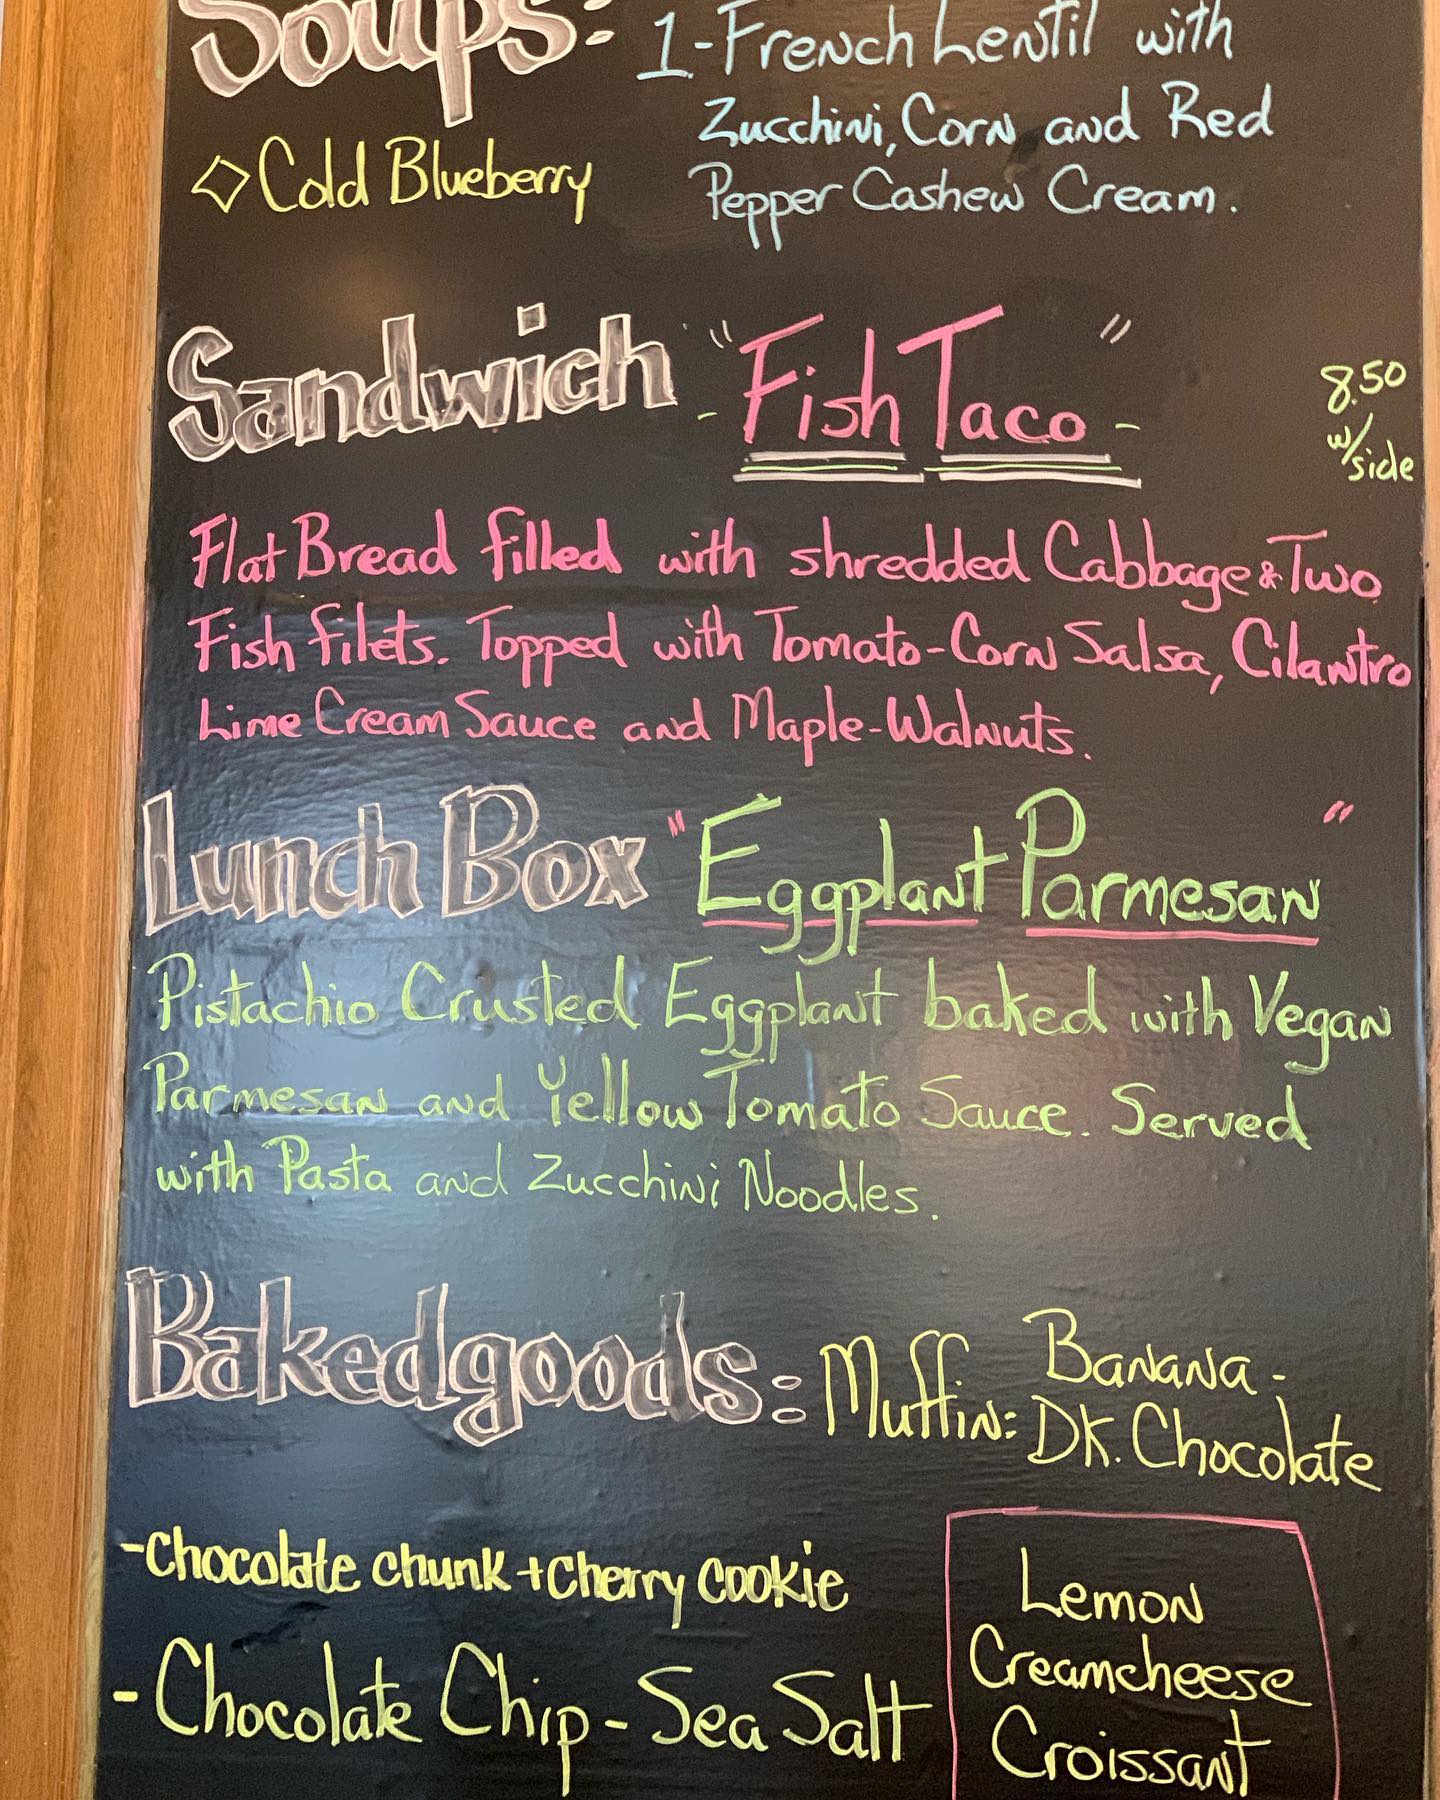 Soups:
1-French Lentil with
Zucchini, Corn and Red
Pepper Cashew Cream.
◇Cold Blueberry
Sandwich "Fish Taco"
8.50
w/side
Flat Bread filled with shredded Cabbage & Two
Fish filets. Topped with Tomato-Corn Salsa, Cilantro
Lime Cream Sauce and Maple-Walnuts.
Lunch Box "Eggplant Parmesan"
Pistachio Crusted Eggplant baked with Vegan
Parmesan and Yellow Tomato Sauce. Served
with Pasta and Zucchini Noodles.
Bakedgoods: Muffin: Banana-
DK. Chocolate
-Chocolate chunk + Cherry cookie
-Chocolate Chip - Sea Salt
Lemon
Creamcheese
Croissant